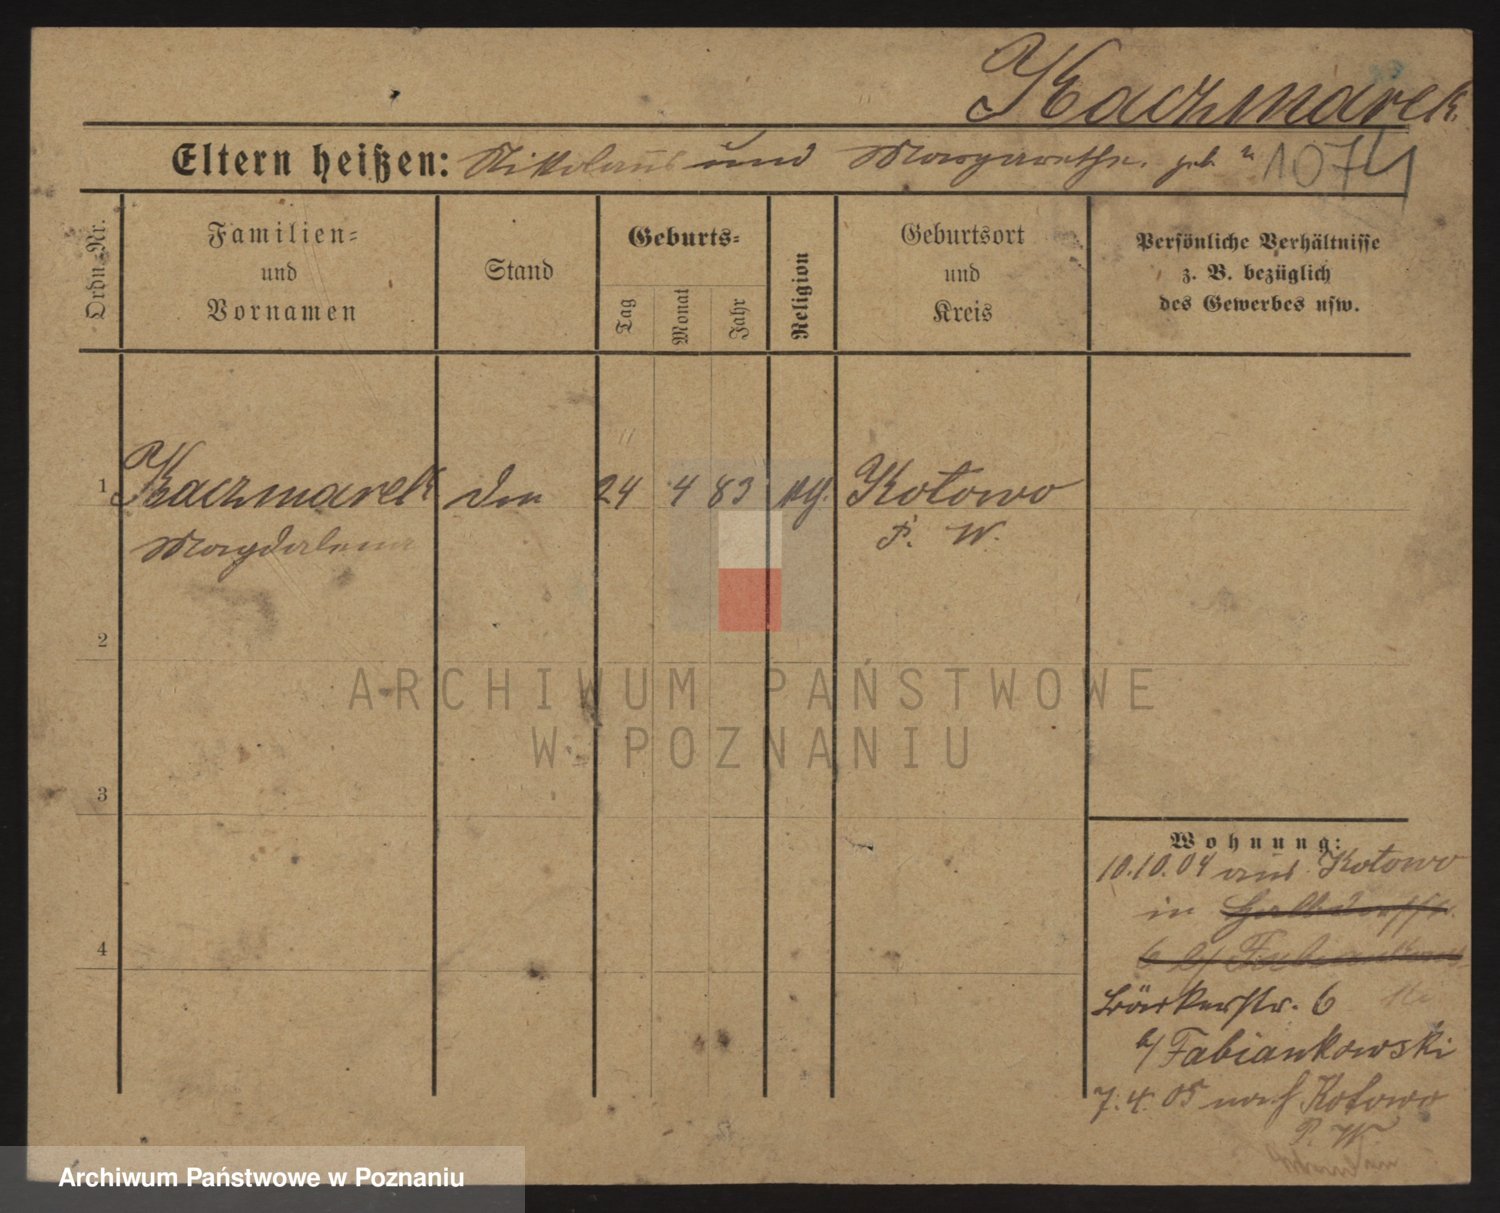 Kaczmarek
Eltern heißen: Nikolaus und Margarethe. geb. 1074
Ordn.-Nr.
Familien-
und
Vornamen
Stand
Geburts-
Tag
Monat
Jahr
Religion
Geburtsort
und
Kreis
Persönliche Verhältnisse
z. B. bezüglich
des Gewerbes usw.
1 Kaczmarek 24 4 83 Kotowo
Magdalena P. W.
2
3
4
Wohnung:
10.10.04 aus Kotowo
in
6 b/
Bäckerstr. 6
b/ Fabiankowski
7. 4. 05 nach Kotowo
P. W.
ARCHIWUM PAŃSTWOWE
W POZNANIU
Archiwum Państwowe w Poznaniu